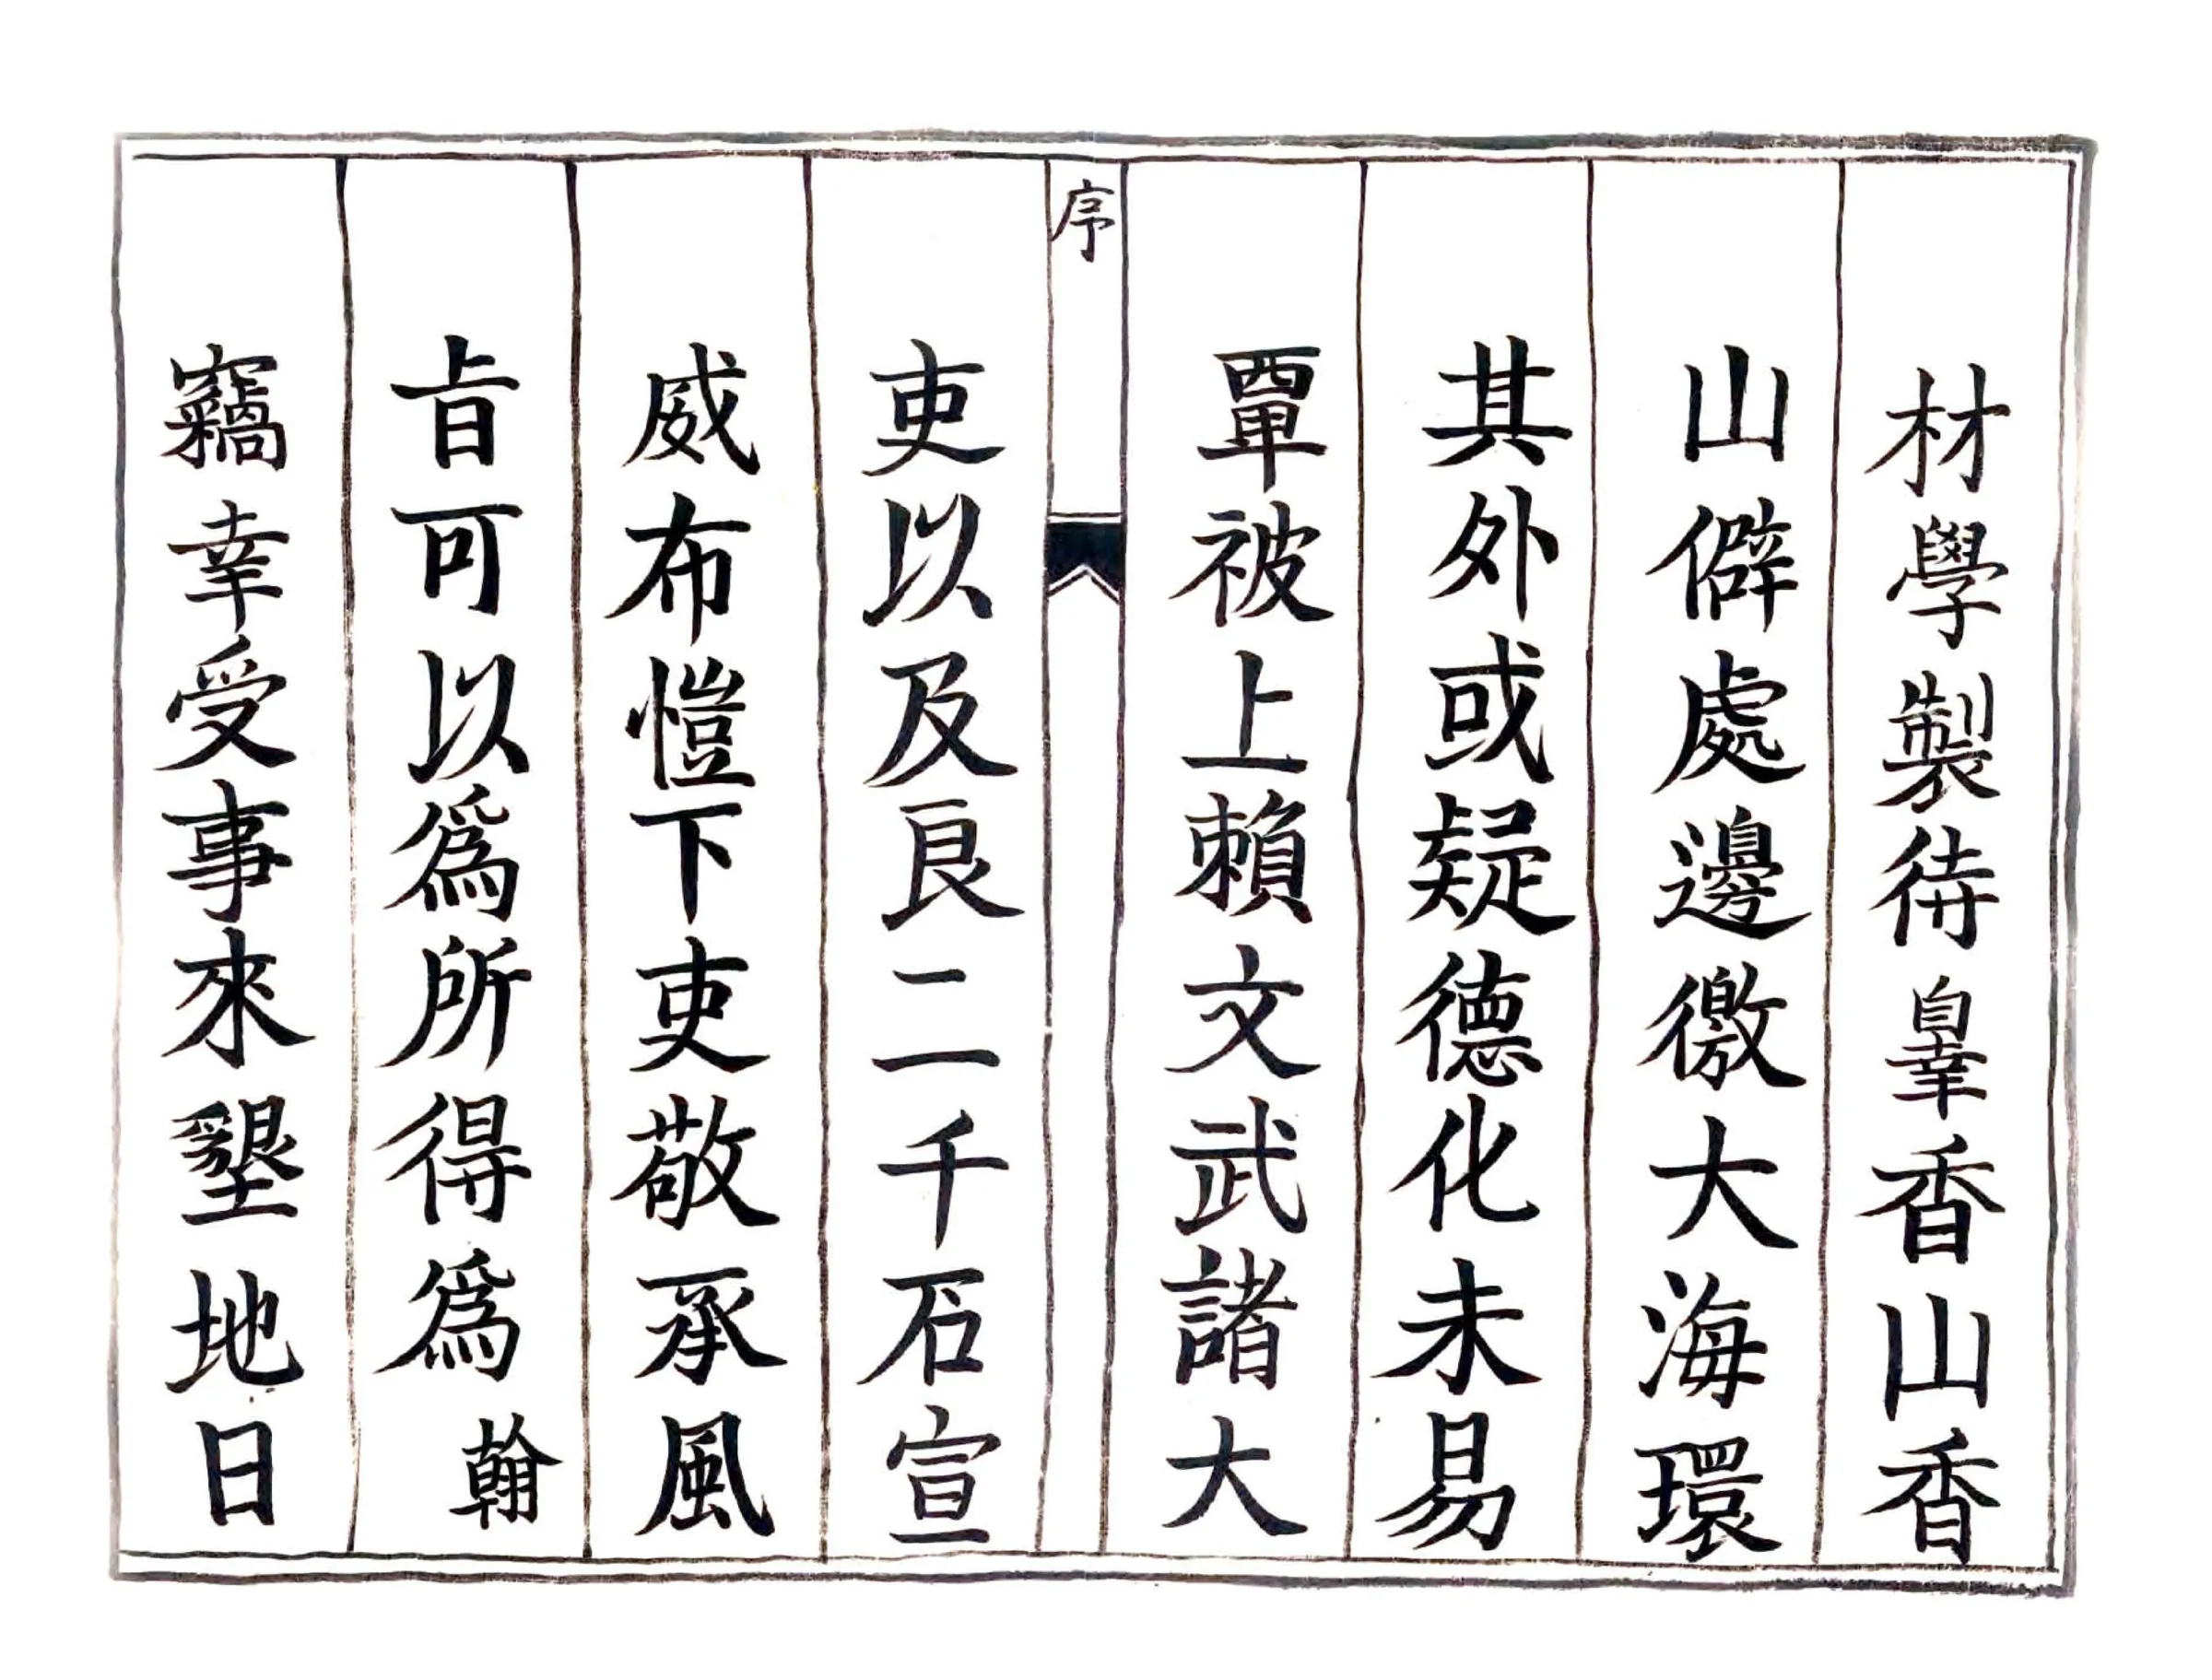 材學製待辠香山香
山僻處邊徼大海環
其外或疑德化未易
覃被上賴文武諸大
序
吏以及良二千石宣
威布愷下吏敬承風
旨可以爲所得爲翰
竊幸受事來墾地日